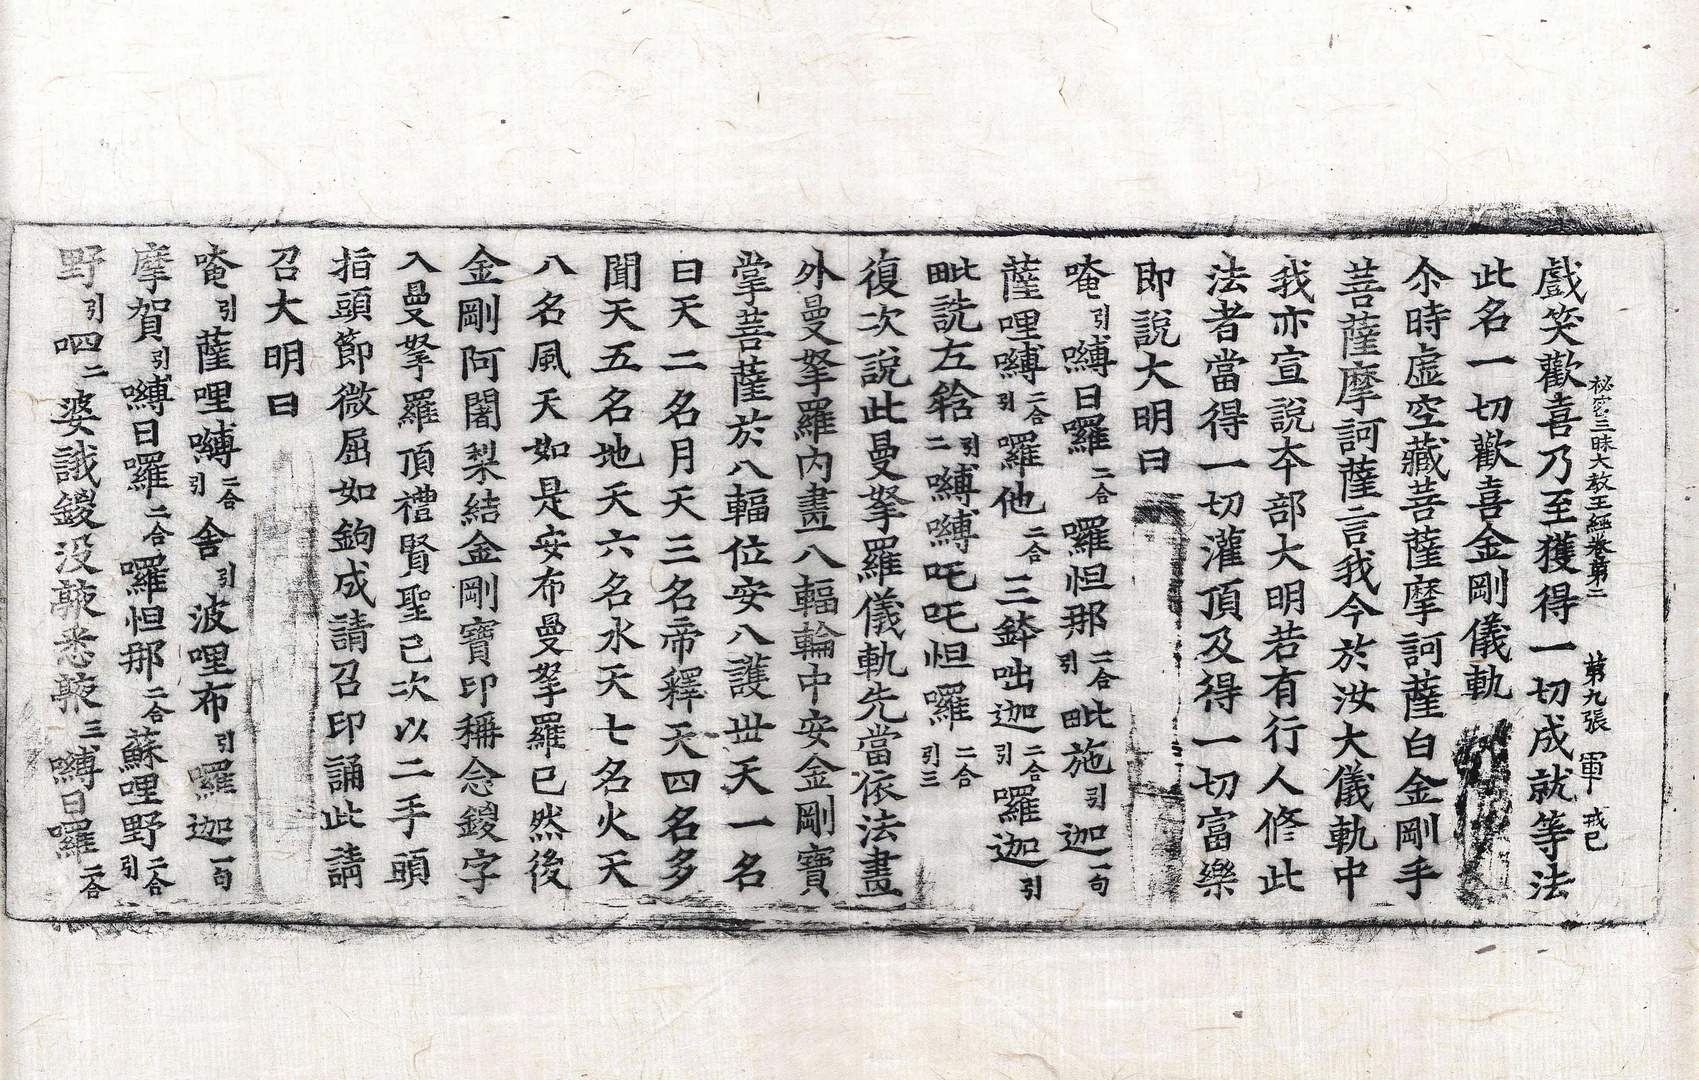 祕密三昧大教王經卷第二　第九張　軍　戒已
戲笑歡喜乃至獲得一切成就等法
此名一切歡喜金剛儀軌
尒時虛空藏菩薩摩訶薩白金剛手
菩薩摩訶薩言我今於汝大儀軌中
我亦宣說夲部大明若有行人修此
法者當得一切灌頂及得一切富樂
即說大明曰
唵引嚩日囉二合囉怛那二合引毗施引迦一句
薩哩嚩二合引囉他二合三鉢咄迦二合引囉迦引
毗詵左𤚥引二嚩嚩吒吒怛囉二合引三
復次說此曼拏羅儀軌先當依法畫
外曼拏羅內畫八輻輪中安金剛寶
掌菩薩於八輻位安八護世天一名
日天二名月天三名帝釋天四名多
聞天五名地天六名水天七名火天
八名風天如是安布曼拏羅已然後
金剛阿闍梨結金剛寶印稱念鑁字
入曼拏羅頂禮賢聖已次以二手頭
指頭節微屈如鉤成請召印誦此請
召大明曰
唵引薩哩嚩二合引舍引波哩布引囉迦一句
摩賀引嚩日囉二合囉怛那二合蘇哩野二合引
野引呬二婆誐鑁沒𩖅悉𩖅三嚩日囉二合